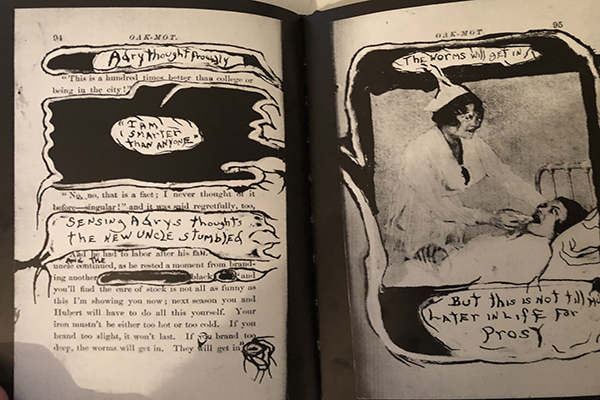 94
OAK-MOT.
Adry thought Proudly
"This is a hundred times better than college or
being in the city!"
"I AM
SMARTER
THAN ANYONE
"No, no, that is a fact; I never thought of it
before—singular!" and it was said regretfully, too,
SENSING Adrys thoughts
THE NEW UNCLE STUMBLED
And he had to labor after his
And the
uncle continued, as he rested a moment from brand-
ing another black and
you'll find the care of stock is not all as funny as
this I'm showing you now; next season you and
Hubert will have to do all this yourself. Your
iron mustn't be either too hot or too cold. If you
brand too slight, it won't last. If you brand too
deep, the worms will get in. They will get in
OAK-MOT.
95
THE WORMS will get in
But this is not till
LATER IN LIFE for
Prosy